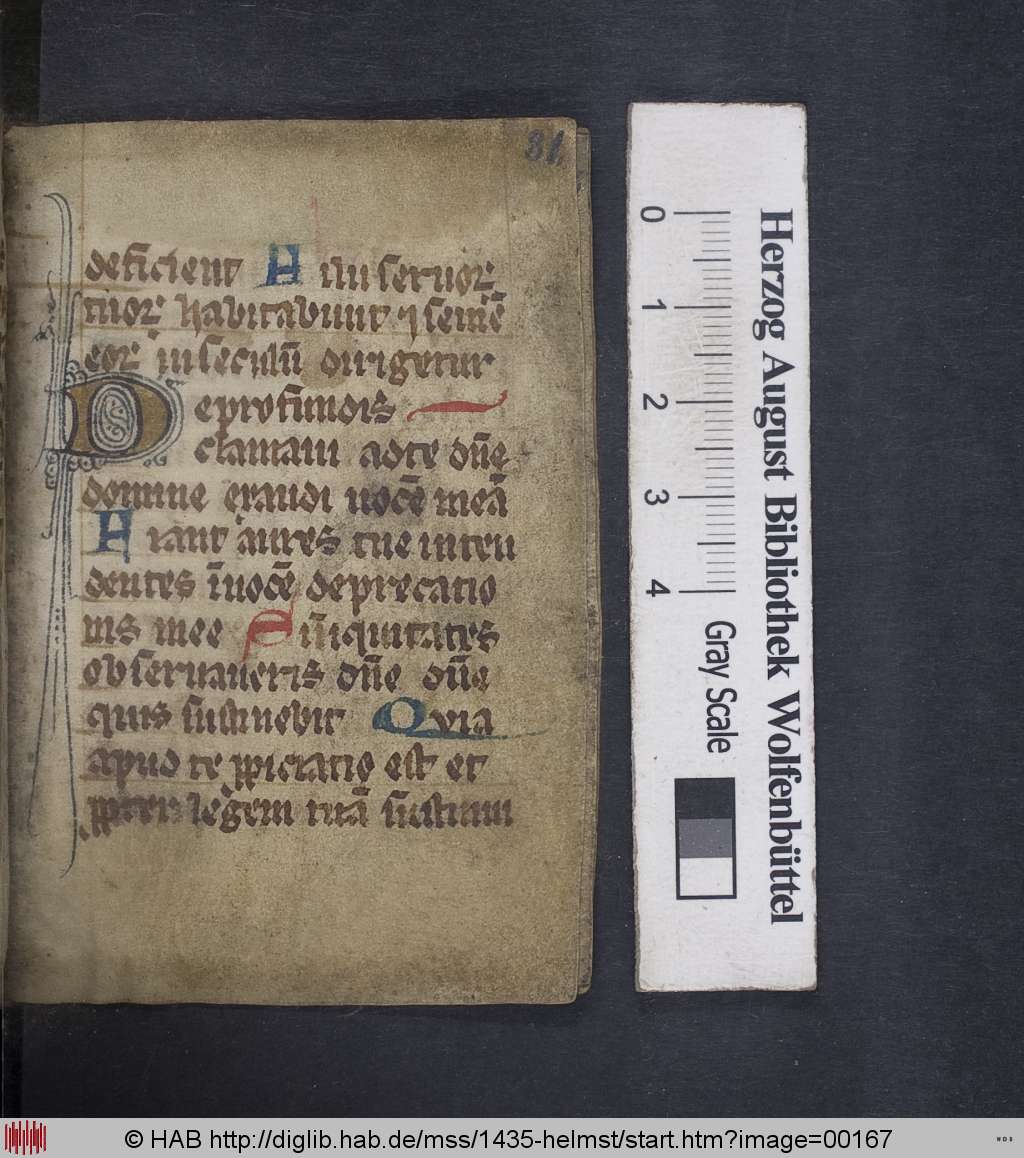 81
deficient Filii seruor
tuor habitabunt ⁊ semē
eor in seculū dirigetur
De profundis
clamaui ad te dn̄e
domine exaudi uocē meā
Fiant aures tue inten
dentes ī uocē deprecatio
nis mee Si īiquitates
obseruaueris dn̄e dn̄e
quis sustinebit Quia
apud te ꝓpiciatio est et
ꝓpter legem tuā sustinui
0 1 2 3 4
Gray Scale
Herzog August Bibliothek Wolfenbüttel
© HAB http://diglib.hab.de/mss/1435-helmst/start.htm?image=00167